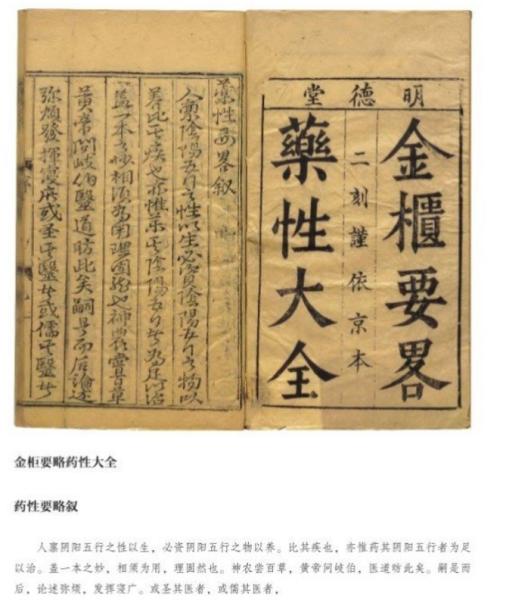 明德堂
金櫃要畧
二刻謹依京本
藥性大全
藥性要畧叙
人稟陰陽五行之性以生必資陰陽五行之物以
養比其疾也亦惟藥其陰陽五行者為足以治
盖一本之妙相須為用理固然也神農嘗百草
黄帝問岐伯醫道昉此矣嗣是而后論述
弥煩發揮寖廣或圣其醫者或儒其醫者
金柜要略药性大全
药性要略叙
人禀阴阳五行之性以生，必资阴阳五行之物以养。比其疾也，亦惟药其阴阳五行者为足
以治。盖一本之妙，相须为用，理固然也。神农尝百草，黄帝问岐伯，医道昉此矣。嗣是而
后，论述弥烦，发挥寖广。或圣其医者，或儒其医者，